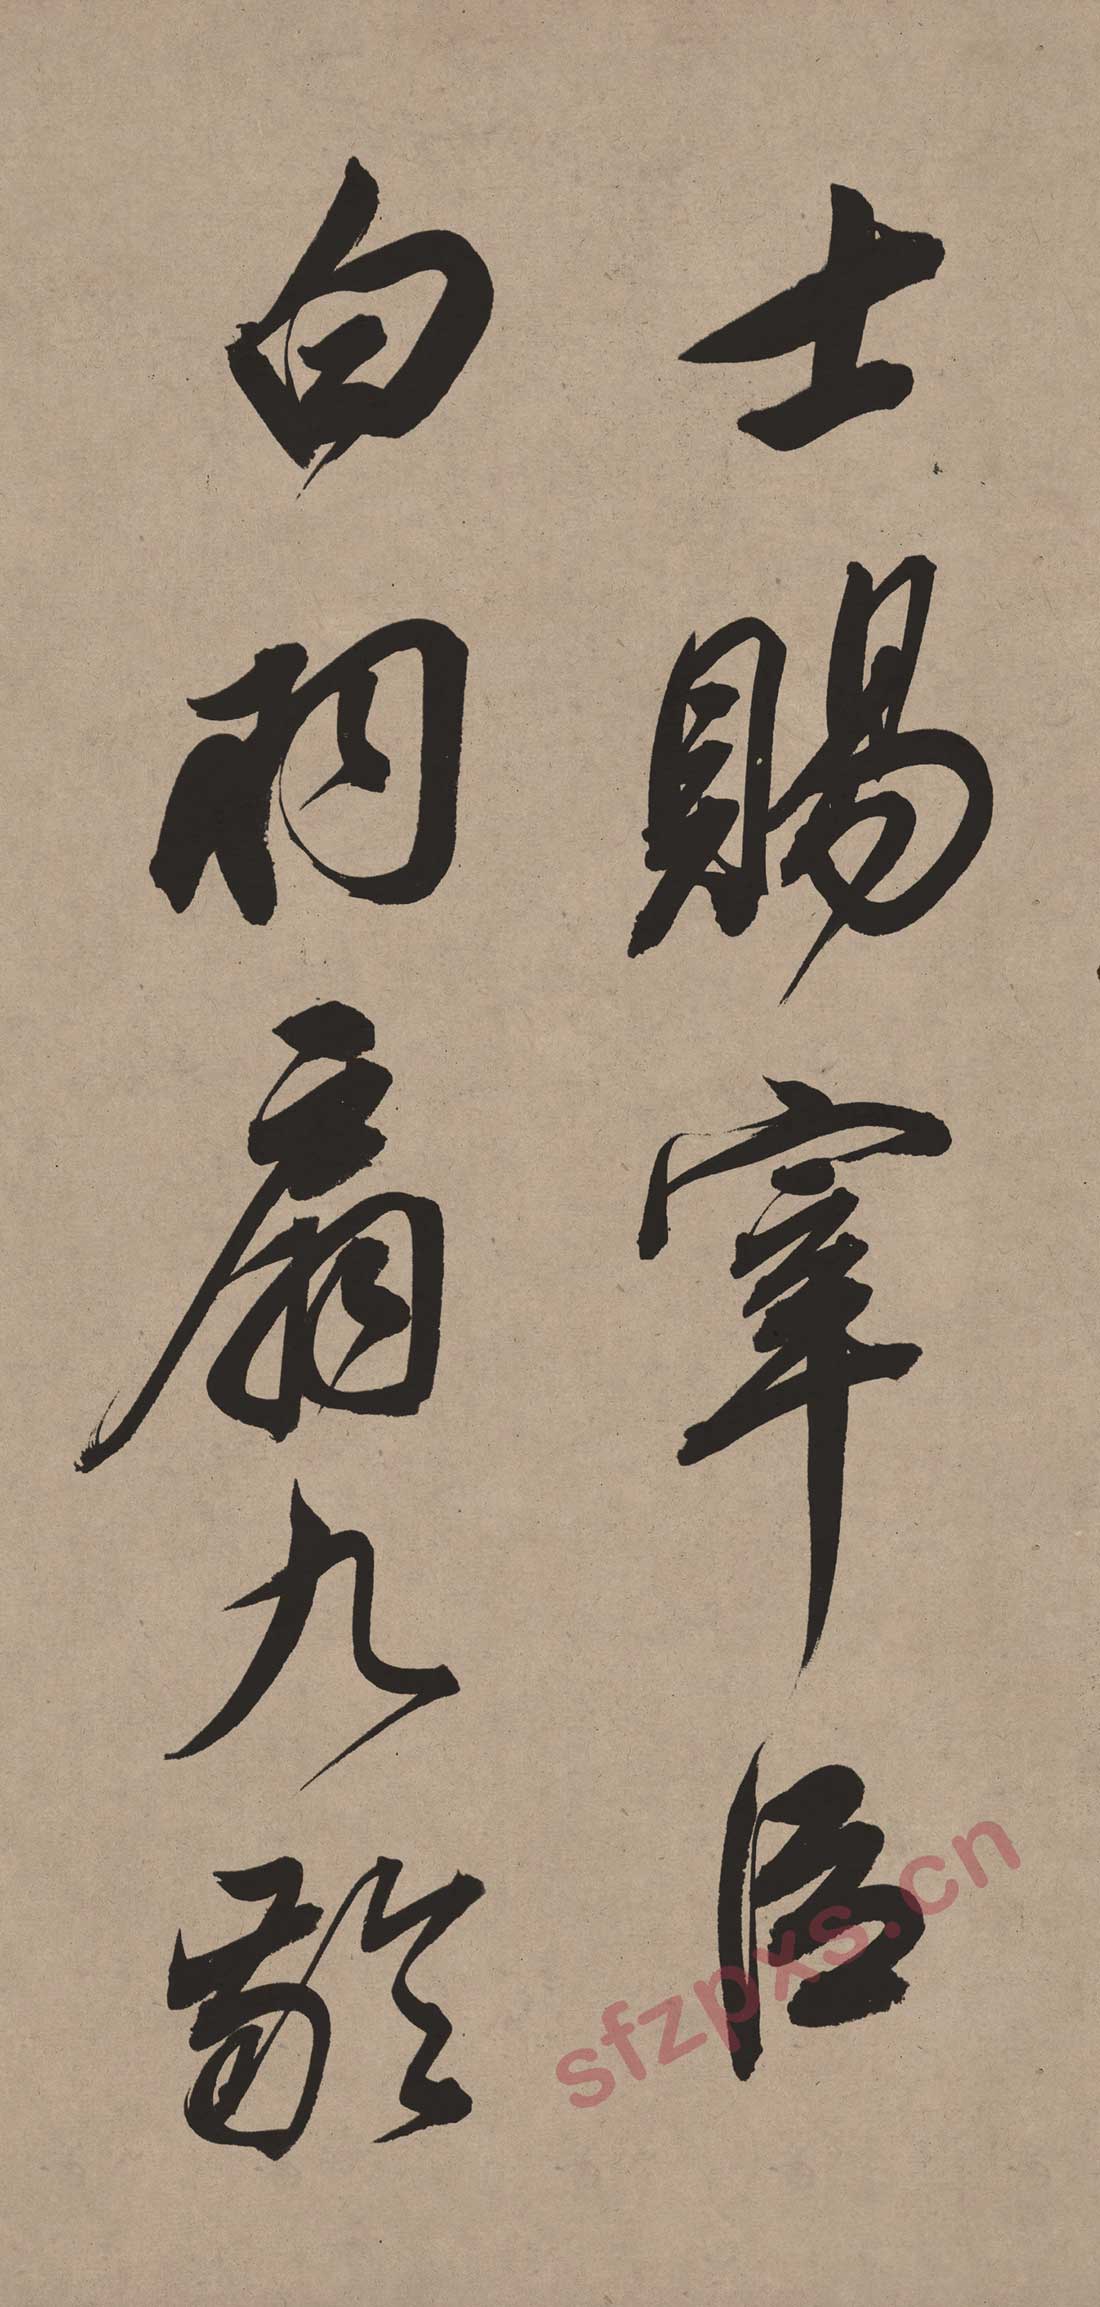 士賜宰臣
白羽扇九齡
sfzpxs.cn